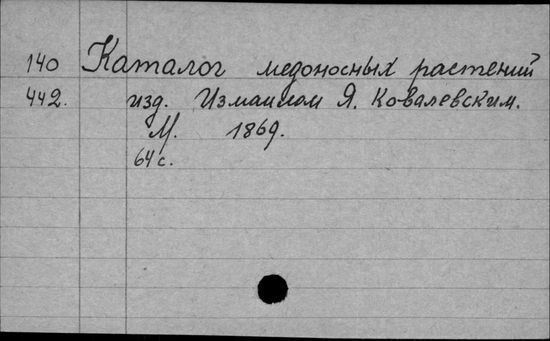 140 Каталог медоносных растений
442. изд. Измаилом Я. Ковалевским.
М. 1869.
64 с.